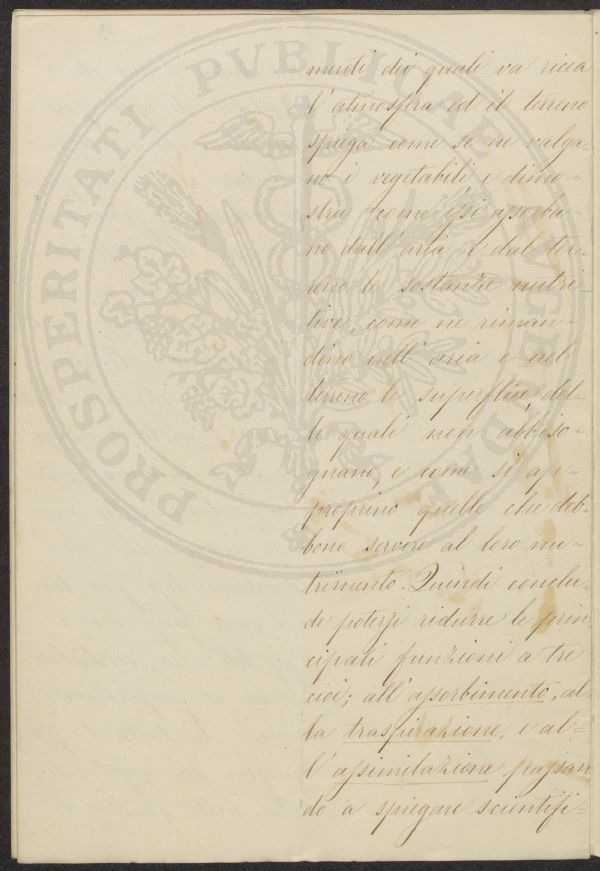 PROSPERITATI PVBLICAE AVGENDAE
menti dei quali va ricca
l'atmosfera ed il terreno
spiega come se ne valga-
no i vegetabili e dimo-
stra come essi assorba-
no dall'aria e dal ter-
reno le sostanze nutri-
tive, come ne riman-
dino nell'aria e nel
terreno le superflue del-
le quali non abbiso-
gnano, e come si ap-
proprino quelle che deb-
bono servire al loro nu-
trimento. Quindi conclu-
de potersi ridurre le prin
cipali funzioni a tre
cioè; all'assorbimento, al
la traspirazione, e al-
l'assimilazione passan
do a spiegare scientifi-